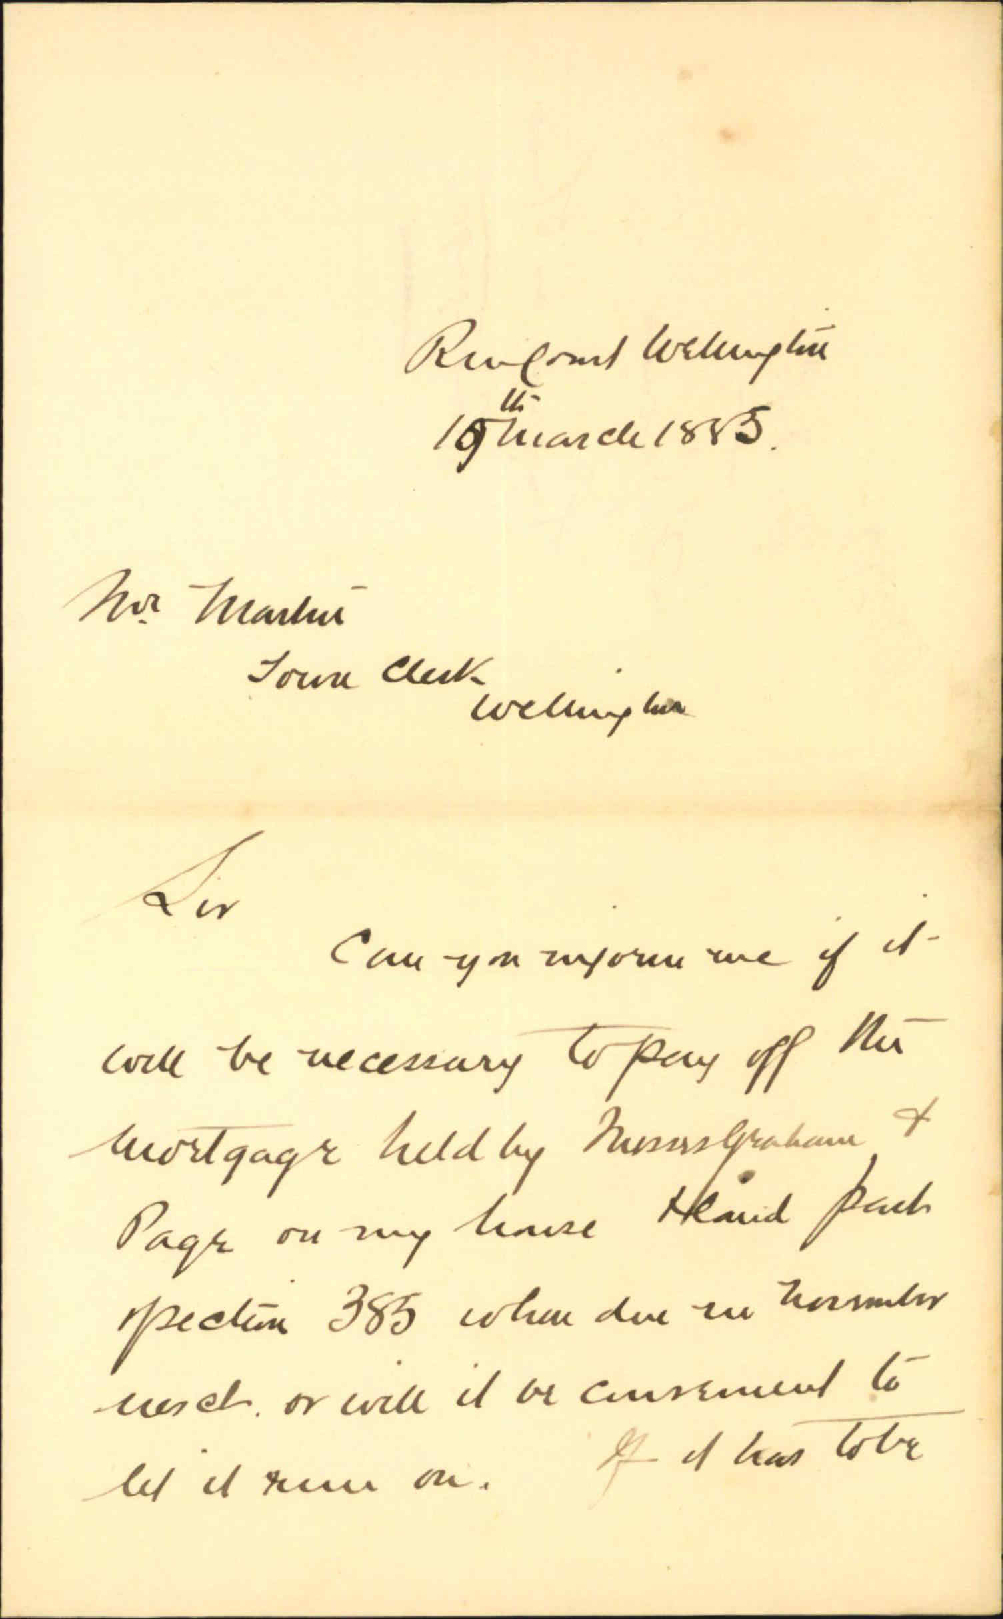 Court Wellington
19th March 1885.
Mr. Martin
Town Clerk
Wellington
Sir
Can you inform me if it
will be necessary to pay off the
mortgage held by Messrs Graham &
Page on my house & land part
section 385 when due in November
next. or will it be convenient to
let it run on. If it has to be